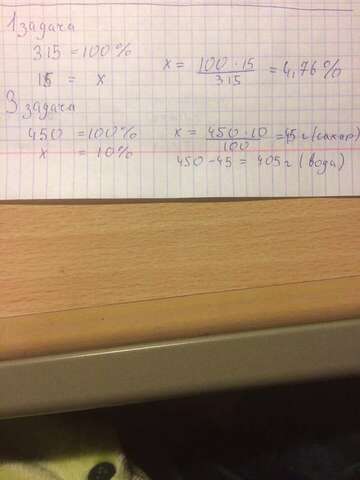 1 задача
315 = 100%
15 = x
x = 100 · 15 / 315 = 4,76%
3 задача
450 = 100%
x = 10%
x = 450 · 10 / 100 = 45 г (сахар)
450 - 45 = 405 г (вода)